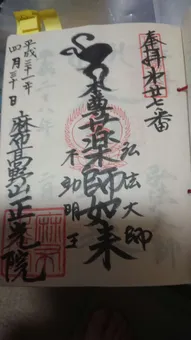 奉拝第廿七番
弘法大師
本尊薬師如来
不動明王
麻布高野山正光院
平成三十一年
四月三十日